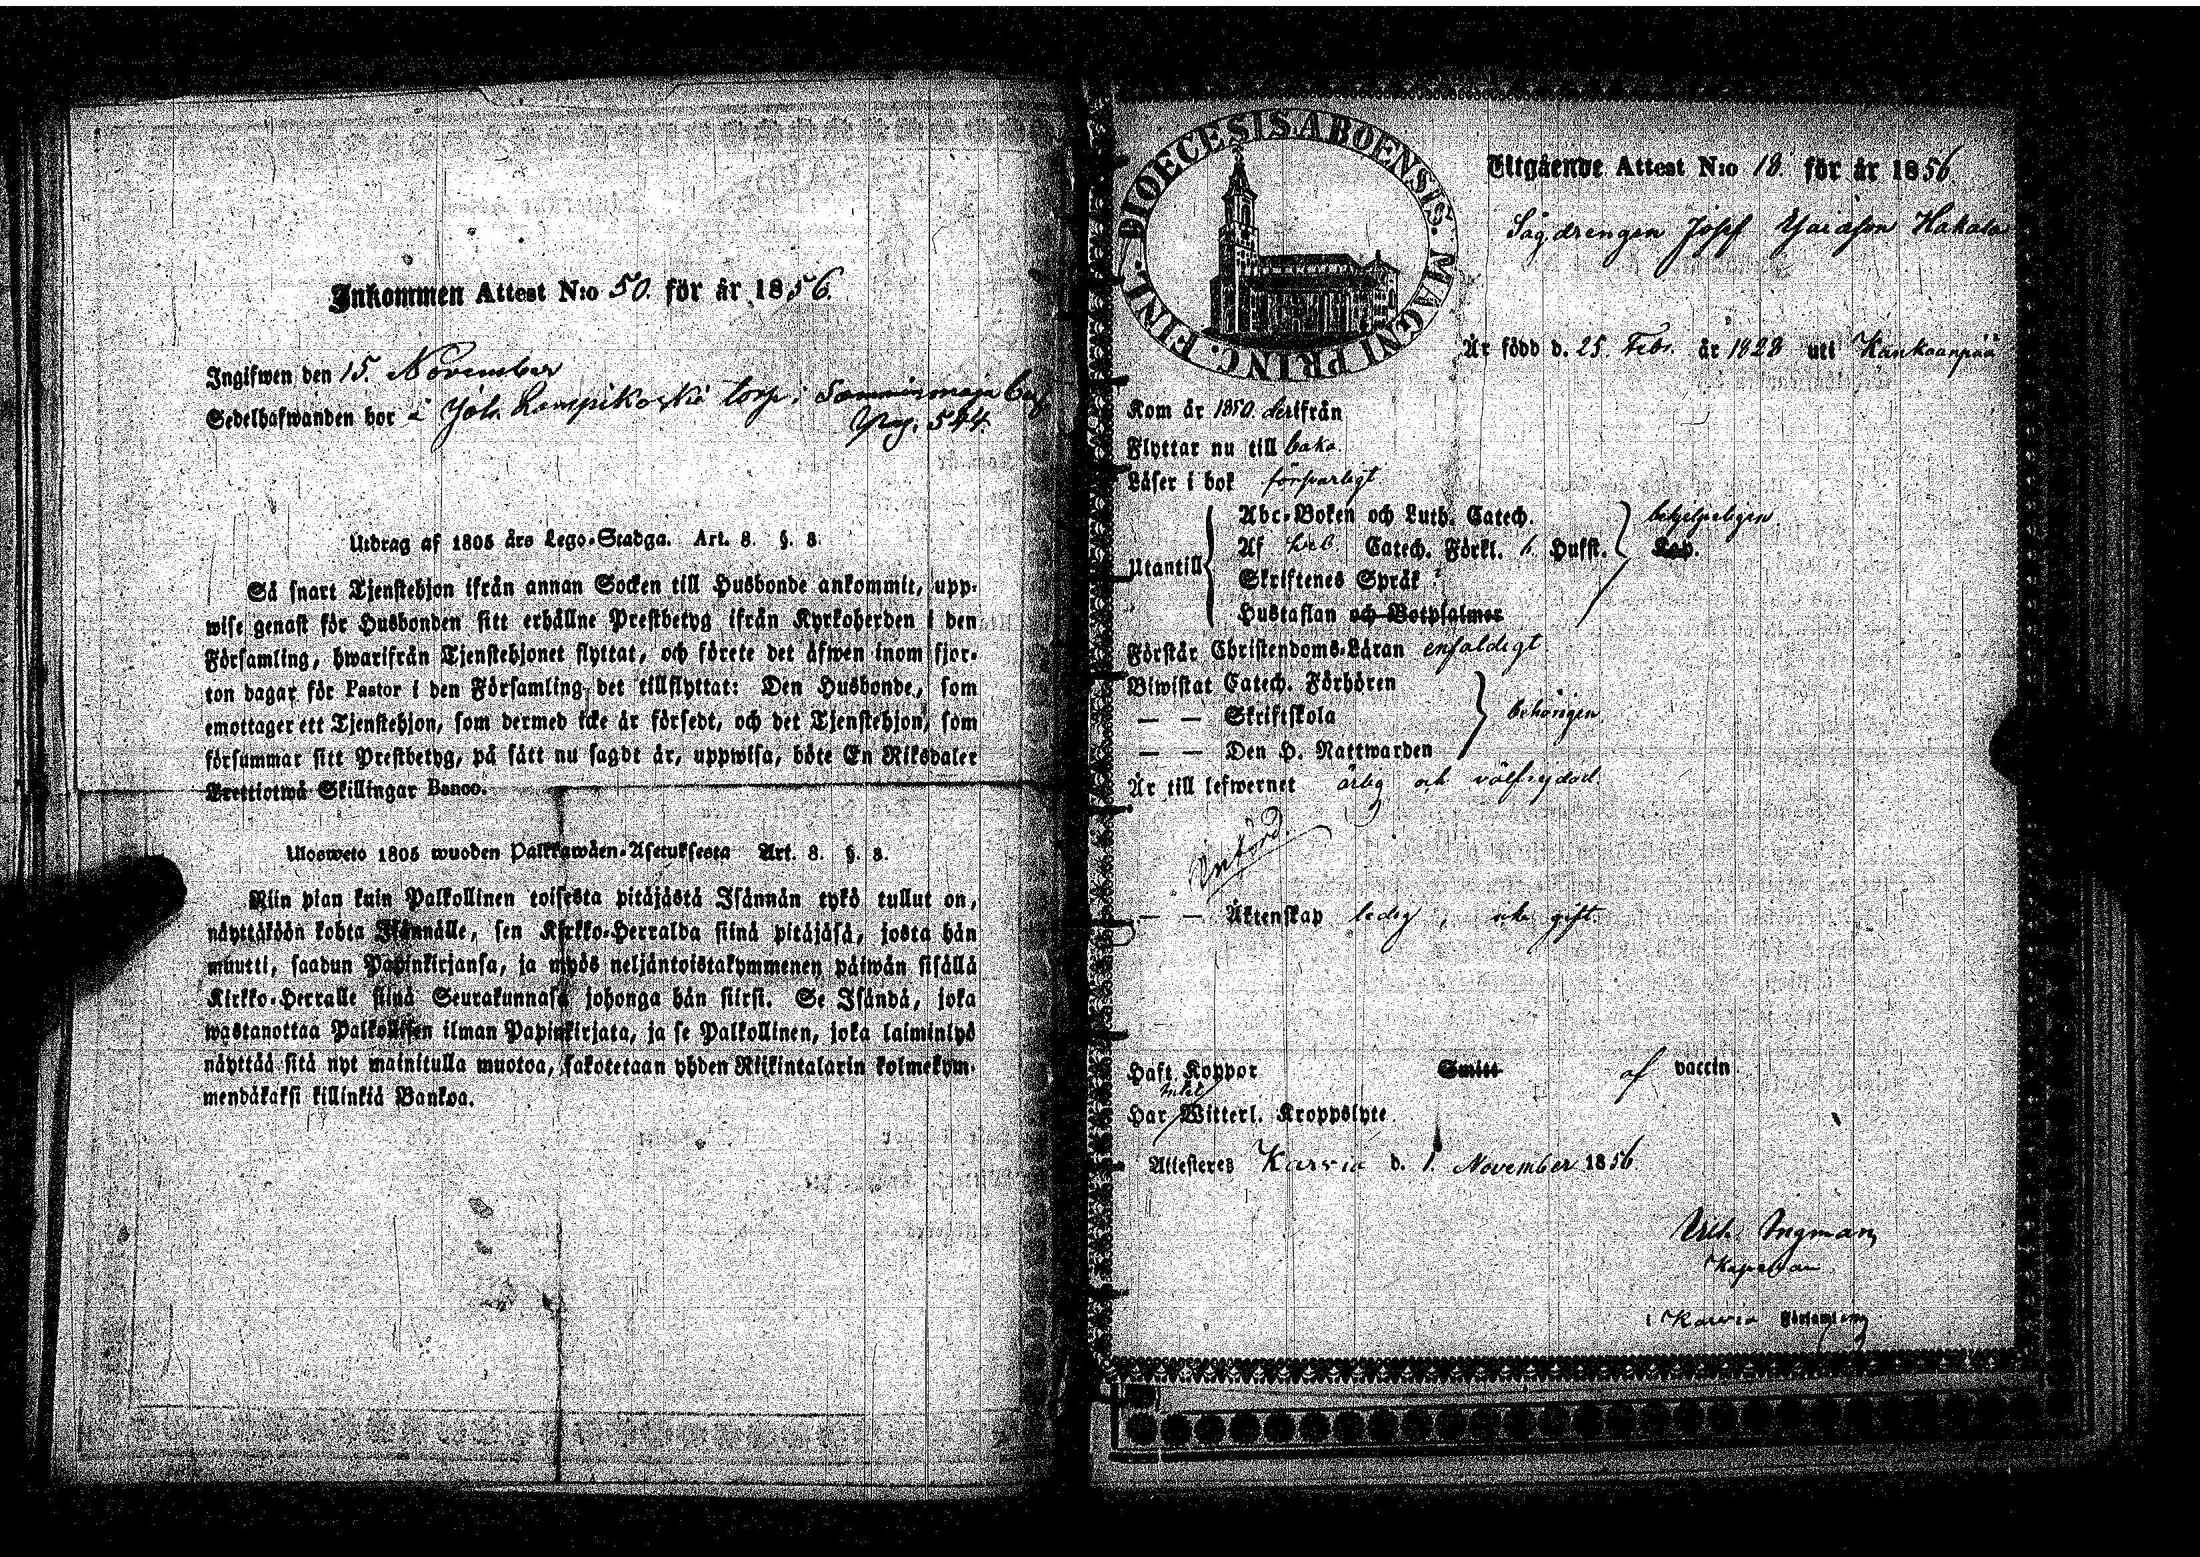 Inkommen Attest N:o 50. för år 1856.
Ingifwen den 15. November
Sedelhafwanden bor i Joh. Lampikoski torp i
Pag. 544.
Utdrag af 1805 års Lego-Stadga. Art. 8. §. 8.
Så snart Tjenstehjon ifrån annan Socken till Husbonde ankommit, upp-
wise genast för Husbonden sitt erhållne Prestbetyg ifrån Kyrkoherden i den
Församling, hwarifrån Tjenstehjonet flyttat, och förete det äfwen inom fjor-
ton dagar för Pastor i den Församling det tillflyttat: Den Husbonde, som
emottager ett Tjenstehjon, som dermed icke är försedt, och det Tjenstehjon, som
försummar sitt Prestbetyg, på sätt nu sagdt är, uppwisa, böte En Riksdaler
Trettiotwå Skillingar Banco.
Ulosweto 1805 wuoden Palkkawäen-Asetuksesta Art. 8. §. 8.
Niin pian kuin Palkollinen toisesta pitäjästä Isännän tykö tullut on,
näyttäköön kohta Isännälle, sen Kirkko-Herralda siinä pitäjäsä, josta hän
muutti, saadun Papinkirjansa, ja myös neljäntoistakymmenen päiwän sisällä
Kirkko-Herralle siinä Seurakunnasa johonga hän siirsi. Se Isändä, joka
wastanottaa Palkollisen ilman Papinkirjata, ja se Palkollinen, joka laiminlyö
näyttää sitä nyt mainitulla muotoa, sakotetaan yhden Riikintalarin kolmekym-
mendäkaksi killinkiä Bankoa.
DIOECESIS ABOENSIS. MAGNI PRINC. FINL.
Utgående Attest N:o 18. för år 1856.
Sågdrengen Josef Hakala
Är född d. 25. Febr. år 1828 uti Kankaanpää
Kom år 1850. derifrån
Flyttar nu till baka.
Läser i bok försvarligt
Abc-Boken och Luth. Catech. behjelpeligen
Utantill Af Catech. Förkl. 6. Hufst. Lob.
Skriftenes Språk
Hustaflan och Botpsalmer
Förstår Christendoms-Läran enfaldigt.
Biwistat Catech. Förhören
— — Skriftskola behörigen
— — Den H. Nattwarden
Är till lefwernet ärlig och välfrejdad.
Införd.
— — Äktenskap ledig, icke gift.
Haft Koppor Smitt af vaccin.
intet
Har Witterl. Kroppslyte.
Attesteres Karvia d. 1. November 1856
Vilh. Ingman
Kapellan
i Karvia Församling